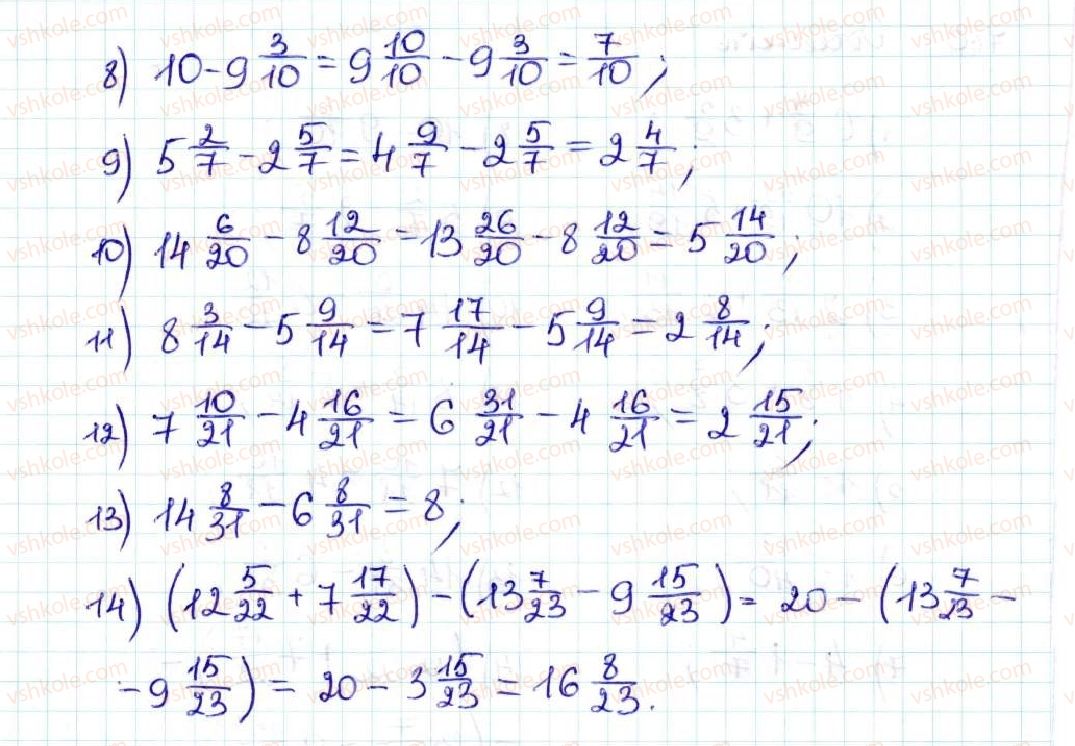 8) 10 - 9 3/10 = 9 10/10 - 9 3/10 = 7/10;
9) 5 2/7 - 2 5/7 = 4 9/7 - 2 5/7 = 2 4/7;
10) 14 6/20 - 8 12/20 = 13 26/20 - 8 12/20 = 5 14/20;
11) 8 3/14 - 5 9/14 = 7 17/14 - 5 9/14 = 2 8/14;
12) 7 10/21 - 4 16/21 = 6 31/21 - 4 16/21 = 2 15/21;
13) 14 8/31 - 6 8/31 = 8;
14) (12 5/22 + 7 17/22) - (13 7/23 - 9 15/23) = 20 - (13 7/23 -
- 9 15/23) = 20 - 3 15/23 = 16 8/23.
vshkole.com